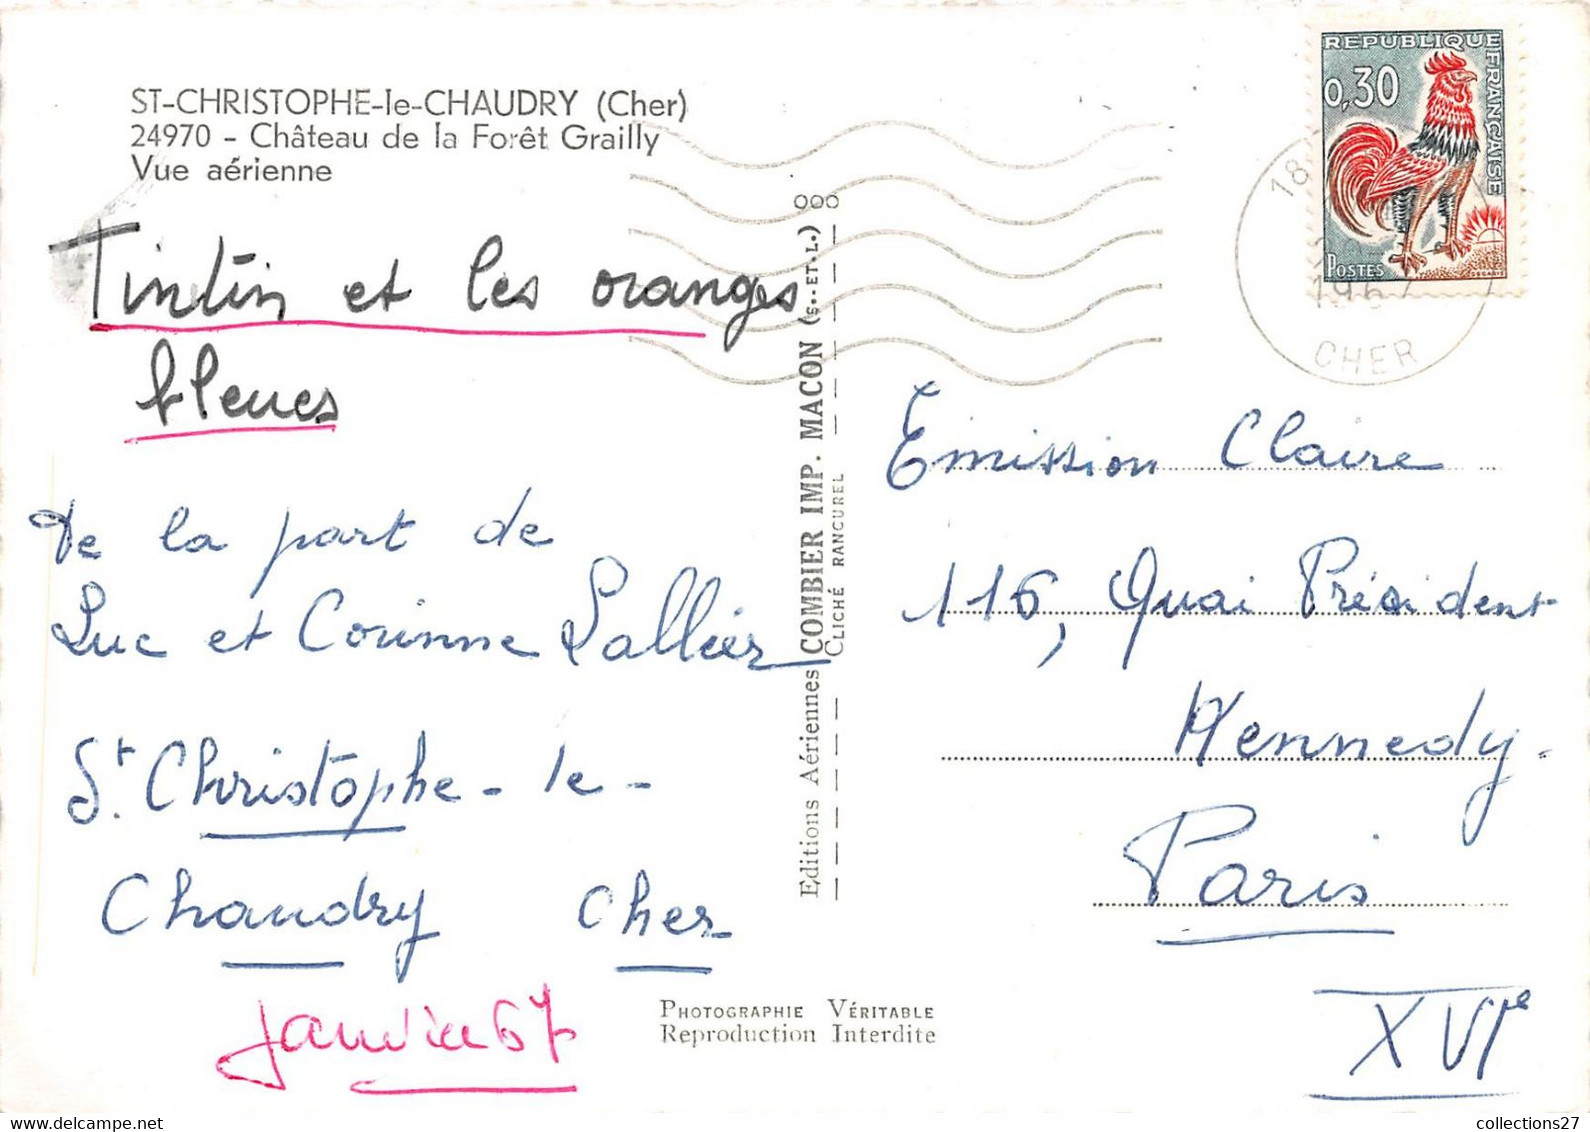 ST-CHRISTOPHE-le-CHAUDRY (Cher)
24970 - Château de la Forêt Grailly
Vue aérienne
Tintin et les oranges
bleues
De la part de
Luc et Corinne Lallier
St. Christophe-le-
Chaudry Cher
Janvier 67
PHOTOGRAPHIE VÉRITABLE
Reproduction Interdite
Editions Aériennes COMBIER IMP. MACON (S.-ET-L.)
CLICHÉ RANCUREL
REPUBLIQUE FRANÇAISE
0,30
POSTES
18
1967
CHER
Emission Claire
116, Quai Président
Kennedy.
Paris
XVIe
collections27